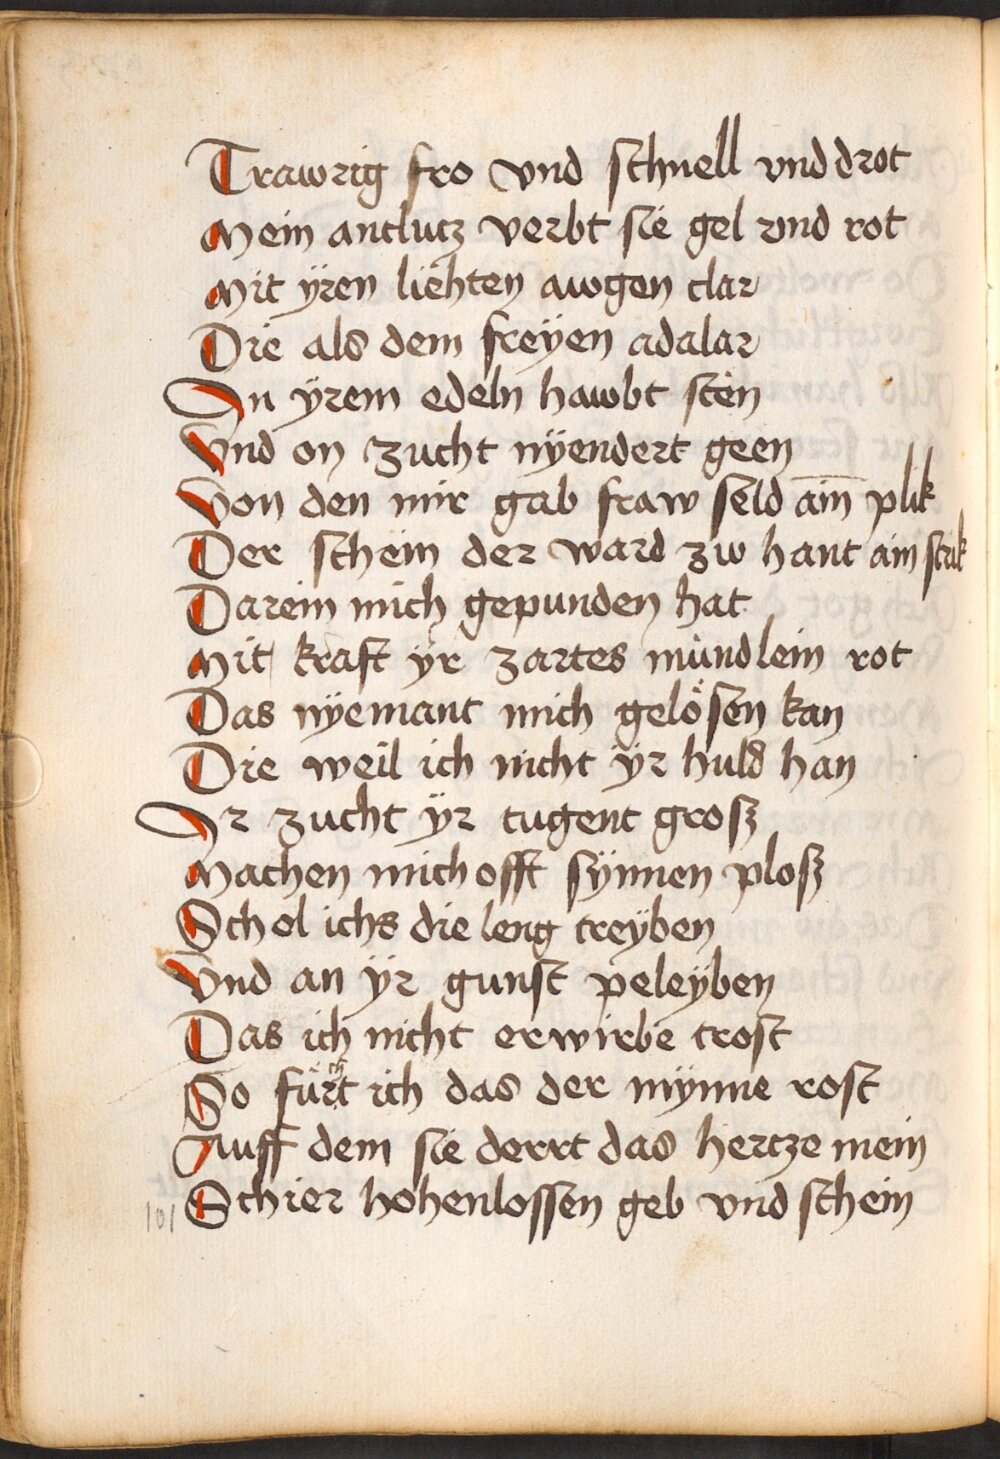 Trawrig fro vnd schnell vnd drot
Mein antlutz verbt sie gel vnd rot
Mit ÿren liehten awgen clar
Die als dem freÿen adalar
In ÿrem edeln hawbt sten
Vnd on zucht nÿendert geen
Von den mir gab fraw seld ain̅ plik
Der schein der ward zw hant ain strik
Darein mich gepunden hat
Mit kraft ÿr zartes mündlein rot
Das nÿemant mich gelösen kan
Die weil ich nicht ÿr huld han
Ir zucht ÿr tugent grosz
Machen mich offt sÿnnen plosz
Schol ichs die leng treÿben
Vnd an ÿr gunst peleÿben
Das ich nicht erwirbe trost
So fürcht ich das der mÿnne rost
Auff dem sie derrt das hertze mein
101 Schier hohenlossen geb vnd schein